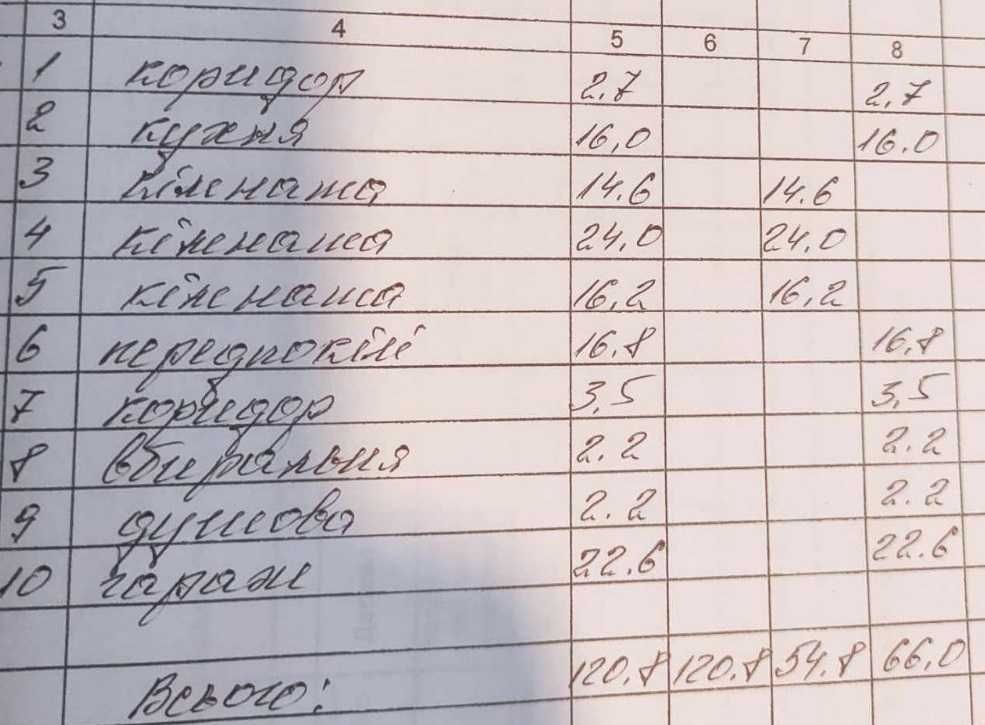 3 4 5 6 7 8
1 коридор 2,7 2,7
2 кухня 16,0 16.0
3 кімната 14.6 14.6
4 кімната 24,0 24.0
5 кімната 16,2 16,2
6 передпокій 16.8 16,8
7 коридор 3,5 3,5
8 вбиральня 2.2 2.2
9 душова 2.2 2.2
10 гараж 22.6 22.6
Всього: 120.8 120.8 54.8 66,0